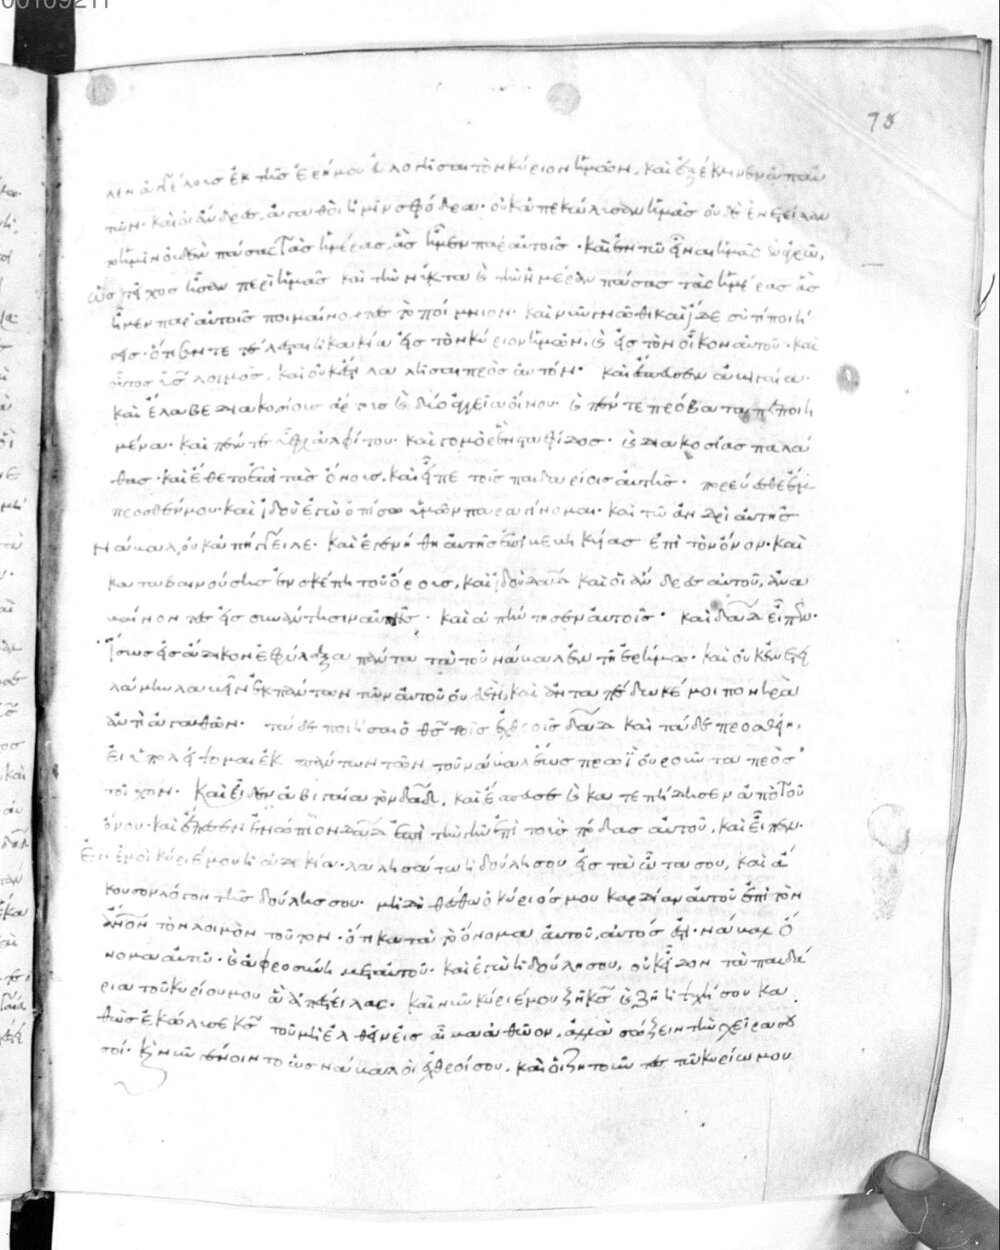 00109211
78
λεν ἀγγέλους ἐκ τῆς ἐρήμου εὐλογῆσαι τὸν κύριον ἡμῶν, καὶ ἐξέκλινεν ἀπ' αὐ
τῶν. καὶ οἱ ἄνδρες ἀγαθοὶ ἡμῖν σφόδρα. οὐκ ἀπεκώλυσαν ἡμᾶς οὐδὲ ἐνετείλαν
ἡμῖν οὐδὲν πάσας τὰς ἡμέρας, ἃς ἦμεν παρ' αὐτοῖς. καὶ ἐν τῷ εἶναι ἡμᾶς ἐν ἀγρῷ,
ὡς τεῖχος ἦσαν περὶ ἡμᾶς καὶ τὴν νύκτα καὶ τὴν ἡμέραν πάσας τὰς ἡμέρας ἃς
ἦμεν παρ' αὐτοῖς ποιμαίνοντες τὸ ποίμνιον. καὶ νῦν γνῶθι καὶ ἴδε σὺ τί ποιή
σεις. ὅτι συντετέλεσται ἡ κακία εἰς τὸν κύριον ἡμῶν, καὶ εἰς τὸν οἶκον αὐτοῦ. καὶ
οὗτος υἱὸς λοιμὸς, καὶ οὐκ ἔστι λαλῆσαι πρὸς αὐτόν. καὶ ἔσπευσεν ἀβιγαία.
καὶ ἔλαβε διακοσίους ἄρτους καὶ δύο ἀγγεῖα οἴνου. καὶ πέντε πρόβατα πεποιη
μένα. καὶ πέντε οἰφὶ ἀλφίτου. καὶ γομὸρ ἓν σταφίδος. καὶ διακοσίας παλά
θας. καὶ ἔθετο ἐπὶ τὰς ὄνους, καὶ εἶπε τοῖς παιδαρίοις αὐτῆς. πορεύεσθε ἔμ
προσθέν μου. καὶ ἰδοὺ ἐγὼ ὀπίσω ὑμῶν παραγίνομαι. καὶ τῷ ἀνδρὶ αὐτῆς
νάκαλ, οὐκ ἀπήγγειλε. καὶ ἐγενήθη αὐτῆς ἐπικεκηκυίας ἐπὶ τὸν ὄνον. καὶ
καταβαινούσης ἐν σκέπῃ τοῦ ὄρους, καὶ ἰδοὺ δαδ καὶ οἱ ἄνδρες αὐτοῦ, ἀνα
καίνοντες εἰς συνάντησιν αὐτῆς. καὶ ἀπήντησεν αὐτοῖς. καὶ δαδ εἶπεν.
ἴσως εἰς ἄδικον ἐφύλαξα πάντα τὰ τοῦ νάκαλ ἐν τῇ ἐρήμῳ. καὶ οὐκ ἐνετει
λάμην λαβεῖν ἐκ πάντων τῶν αὐτοῦ οὐδὲν, καὶ ἀνταπέδωκέ μοι πονηρὰ
ἀντὶ ἀγαθῶν. τάδε ποιήσαι ὁ θς τοῖς ἐχθροῖς δαδ καὶ τάδε προσθείη,
εἰ ὑπολείψομαι ἐκ πάντων τῶν τοῦ νάκαλ ἕως πρωῒ οὐροῦντα πρὸς
τοῖχον. καὶ εἶδεν ἀβιγαία τὸν δαδ, καὶ ἔσπευσε καὶ κατεπήδησεν ἀπὸ τοῦ
ὄνου. καὶ ἔπεσεν ἐνώπιον δαδ ἐπὶ τὴν γῆν ἐπὶ τοὺς πόδας αὐτοῦ, καὶ εἶπεν.
Ἐν ἐμοὶ κύριέ μου ἡ ἀδικία. λαλησάτω ἡ δούλη σου εἰς τὰ ὦτα σου, καὶ ἄ
κουσον λόγον τῆς δούλης σου. μὴ δὴ θέσθω ὁ κύριός μου καρδίαν αὐτοῦ ἐπὶ τὸν
ἄνον τὸν λοιμὸν τοῦτον. ὅτι κατὰ τὸ ὄνομα αὐτοῦ, αὐτός ἐστι. νάκαλ ὄ
νομα αὐτῷ. καὶ ἀφροσύνη μετ' αὐτοῦ. καὶ ἐγὼ ἡ δούλη σου, οὐκ εἶδον τὰ παιδά
ρια τοῦ κυρίου μου ἃ ἀπέστειλας. καὶ νῦν κύριέ μου ζῇ κς καὶ ζῇ ἡ ψυχή σου κα
θὼς ἐκώλυσέ κς τοῦ μὴ ἐλθεῖν εἰς αἷμα ἀθῶον, ἀλλὰ σώζειν τὴν χεῖρα σου
σοί. καὶ νῦν γένοιντο ὡς νάκαλ οἱ ἐχθροί σου, καὶ οἱ ζητοῦντες τῷ κυρίῳ μου